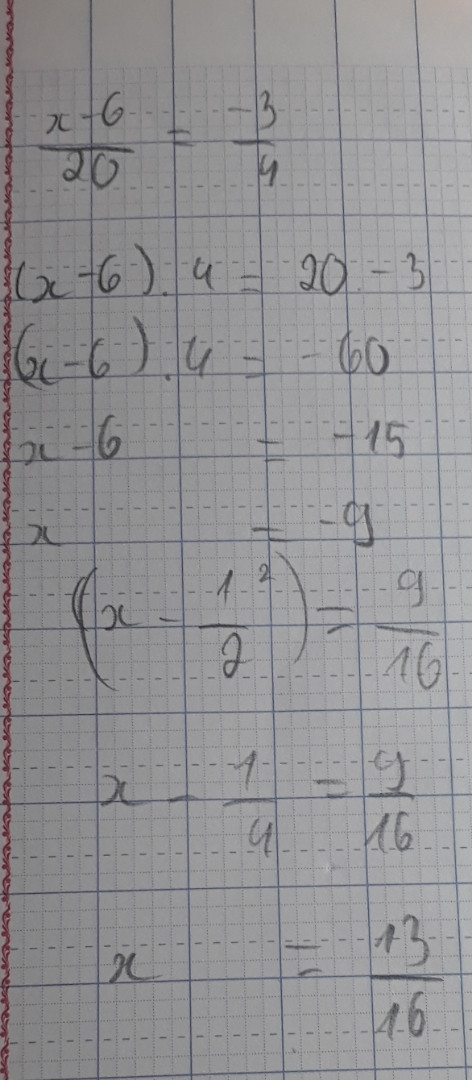 x-6/20 = -3/4
(x-6).4 = 20.-3
(x-6).4 = -60
x-6 = -15
x = -9
(x - 1²/2) = 9/16
x - 1/4 = 9/16
x = 13/16